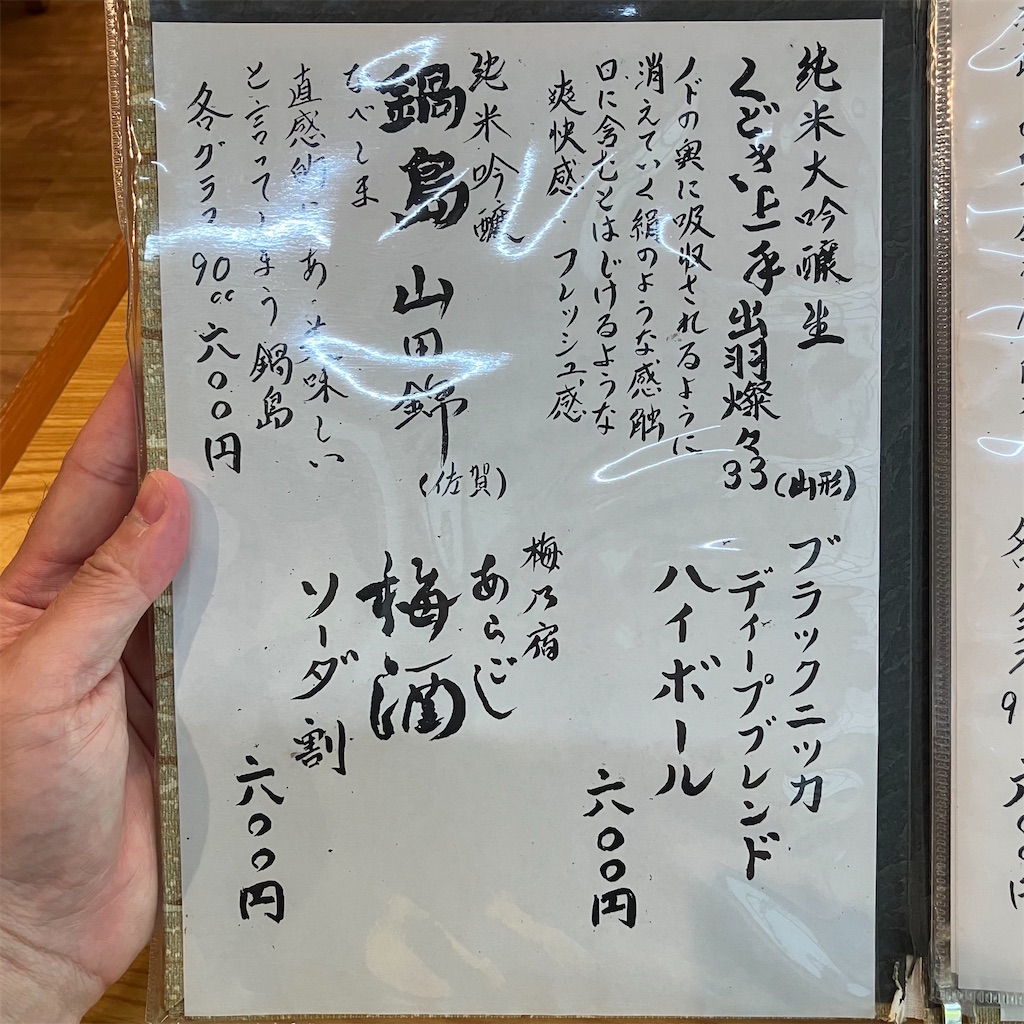 純米大吟醸生
くどき上手 出羽燦々33
(山形)
ノドの奥に吸収されるように
消えていく絹のような感触
口に含むとはじけるような
爽快感・フレッシュ感
純米吟醸
鍋島 山田錦
(佐賀)
なべしま
直感的に あ 美味しい
と言ってしまう 鍋島
各グラス90cc 六〇〇円
ブラックニッカ
ディープブレンド
ハイボール
六〇〇円
梅乃宿
あらごし
梅酒
ソーダ割
六〇〇円